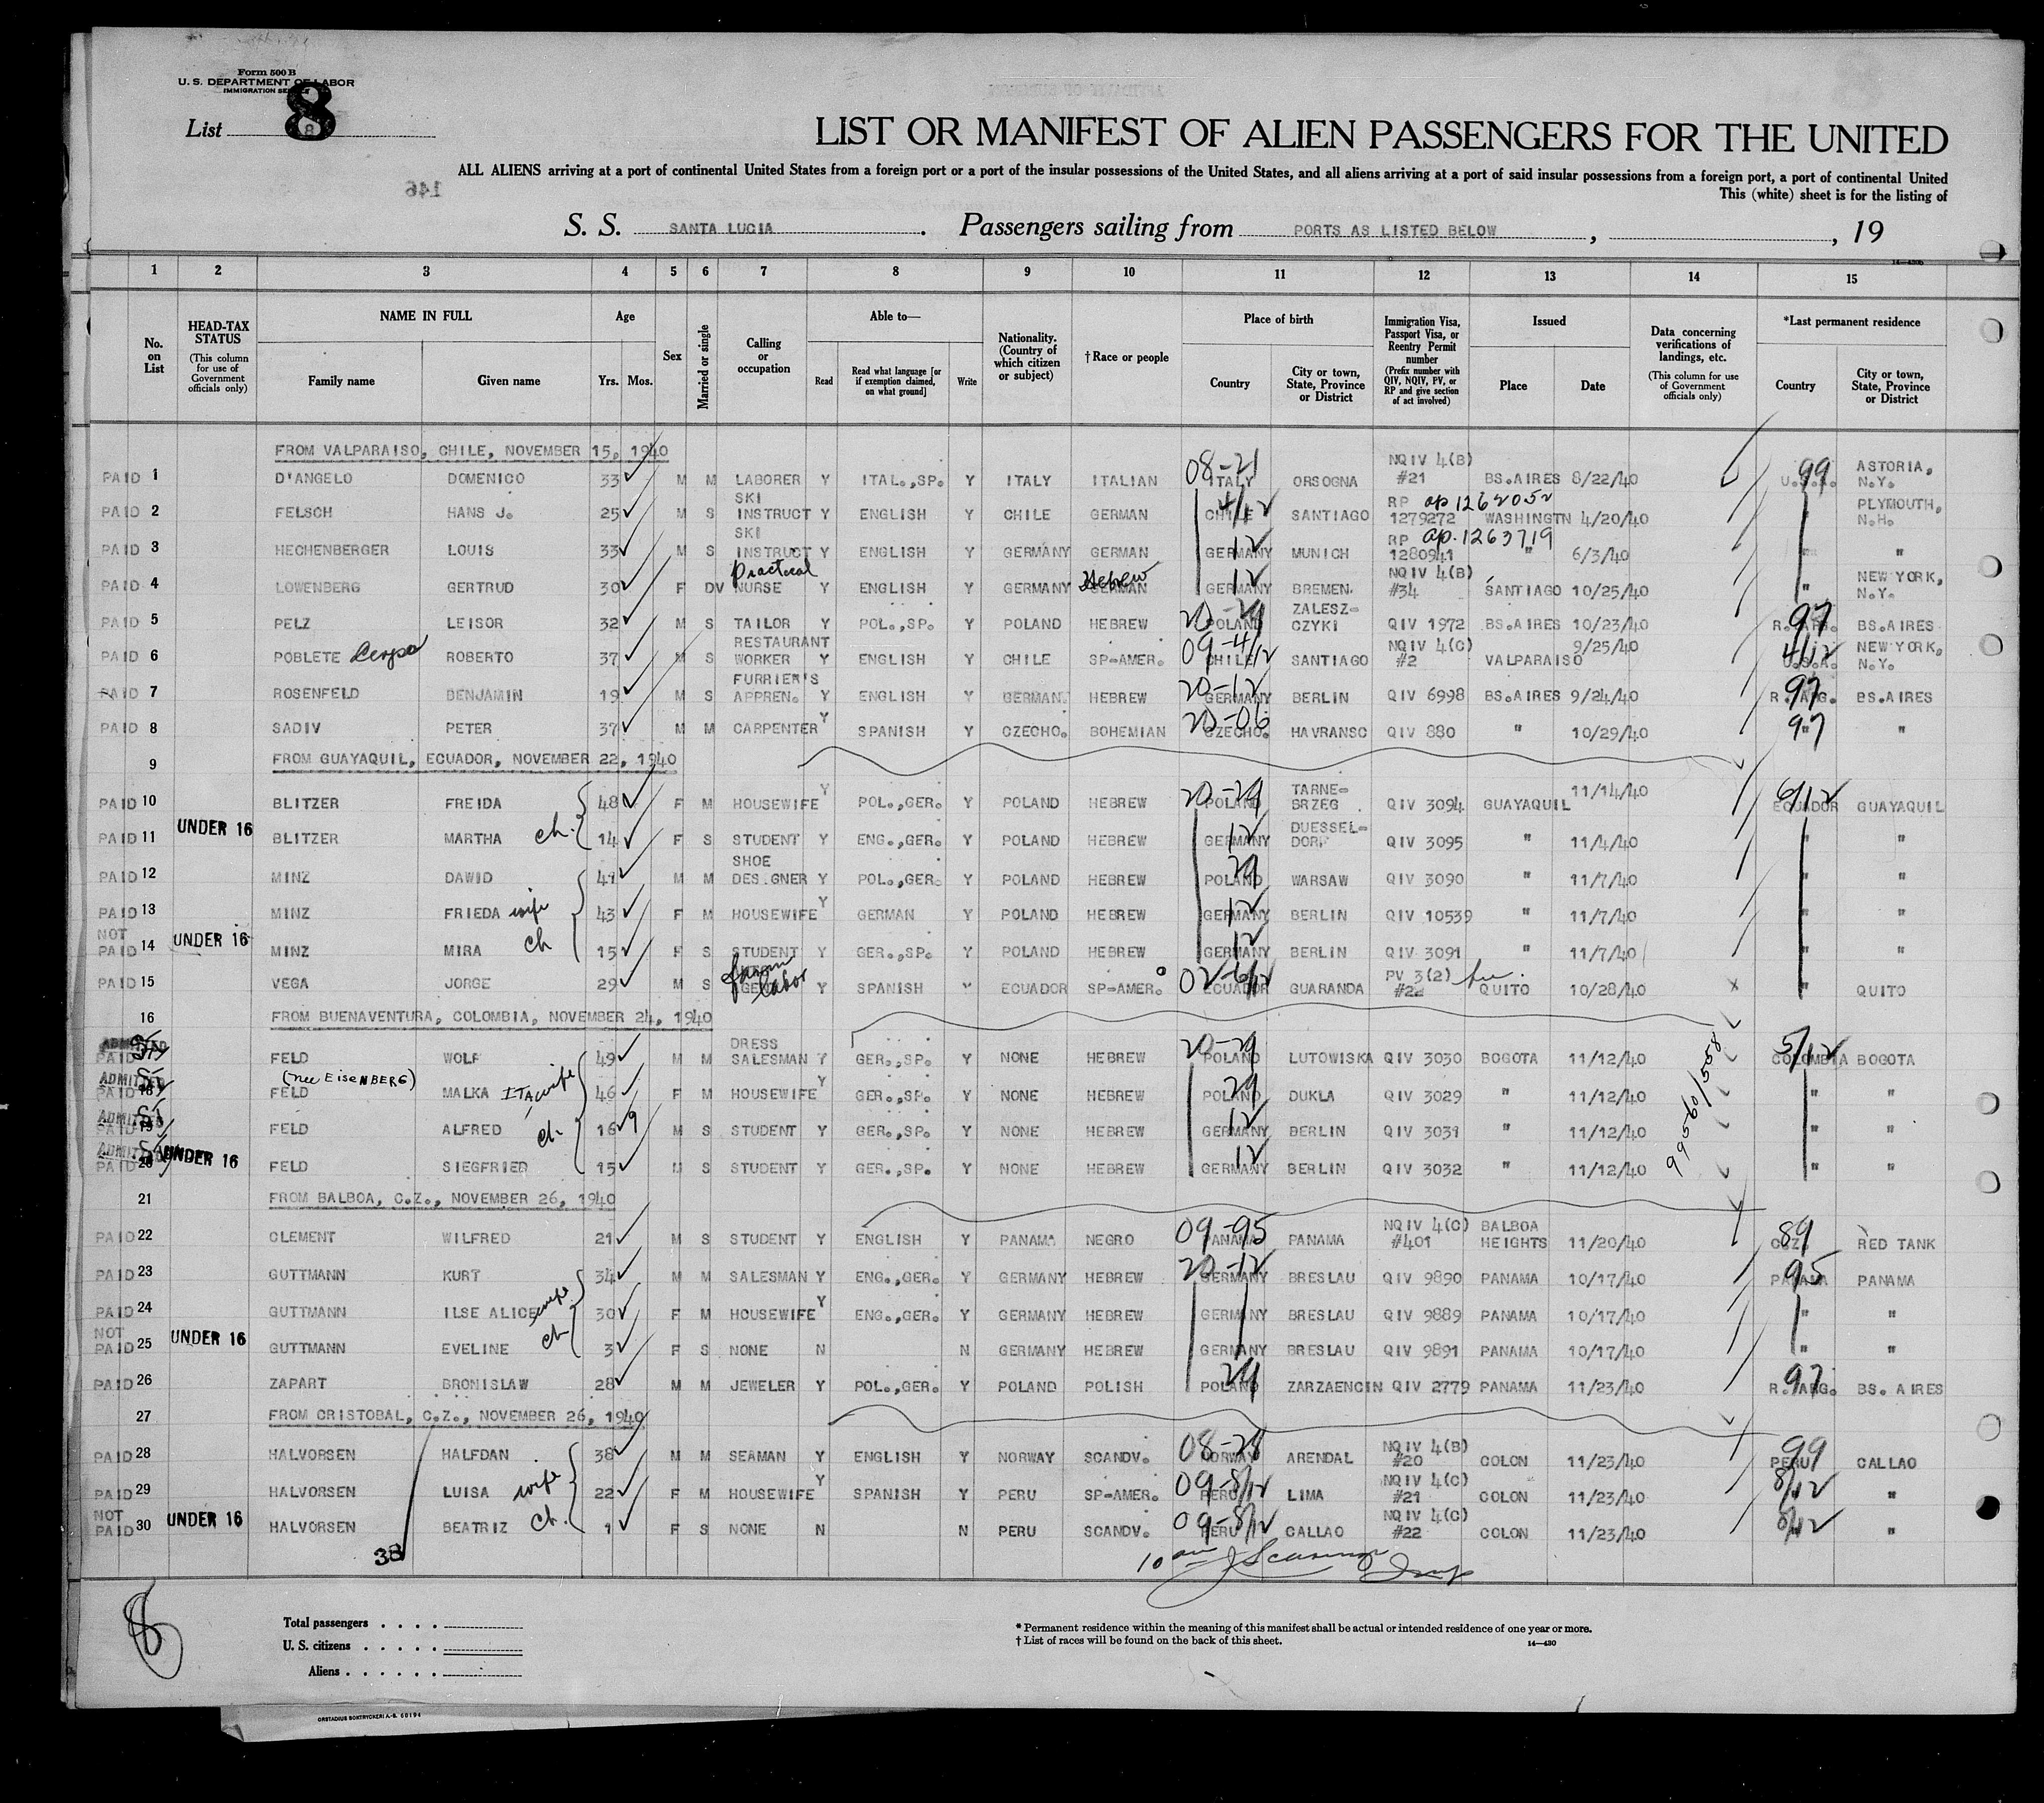 Form 500 B
U. S. DEPARTMENT OF LABOR
IMMIGRATION
List 8
LIST OR MANIFEST OF ALIEN PASSENGERS FOR THE UNITED
ALL ALIENS arriving at a port of continental United States from a foreign port or a port of the insular possessions of the United States, and all aliens arriving at a port of said insular possessions from a foreign port, a port of continental United
This (white) sheet is for the listing of
146
S. S. SANTA LUCIA . Passengers sailing from PORTS AS LISTED BELOW , , 19
1 2 3 4 5 6 7 8 9 10 11 12 13 14 15
No. on List
HEAD-TAX STATUS (This column for use of Government officials only)
NAME IN FULL Family name Given name
Age Yrs. Mos.
Sex
Married or single
Calling or occupation
Able to— Read Read what language [or if exemption claimed, on what ground] Write
Nationality. (Country of which citizen or subject)
†Race or people
Place of birth Country City or town, State, Province or District
Immigration Visa, Passport Visa, or Reentry Permit number (Prefix number with QIV, NQIV, PV, or RP and give section of act involved)
Issued Place Date
Data concerning verifications of landings, etc. (This column for use of Government officials only)
*Last permanent residence Country City or town, State, Province or District
FROM VALPARAISO, CHILE, NOVEMBER 15, 1940
PAID 1 D'ANGELO DOMENICO 33 M M LABORER Y ITAL.,SP. Y ITALY ITALIAN 08-21 ITALY ORSOGNA NQIV 4(B) #21 BS.AIRES 8/22/40 99 U.S.A. ASTORIA, N.Y.
PAID 2 FELSCH HANS J. 25 M S SKI INSTRUCT Y ENGLISH Y CHILE GERMAN 4/12 CHILE SANTIAGO RP ap 1262052 1279272 WASHINGTN 4/20/40 PLYMOUTH, N.H.
PAID 3 HECHENBERGER LOUIS 33 M S SKI INSTRUCT Y ENGLISH Y GERMANY GERMAN 12 GERMANY MUNICH RP ap. 1263719 1280941 " 6/3/40 " "
PAID 4 LOWENBERG GERTRUD 30 F DV Practical NURSE Y ENGLISH Y GERMANY Hebrew GERMAN 12 GERMANY BREMEN. NQIV 4(B) #34 SANTIAGO 10/25/40 " NEW YORK, N.Y.
PAID 5 PELZ LEISOR 32 M S TAILOR Y POL.,SP. Y POLAND HEBREW 20-29 POLAND ZALESZ-CZYKI QIV 1972 BS.AIRES 10/23/40 97 R. ARG. BS.AIRES
PAID 6 POBLETE ROBERTO 37 M S RESTAURANT WORKER Y ENGLISH Y CHILE SP-AMER. 09-4/12 CHILE SANTIAGO NQIV 4(C) #2 VALPARAISO 9/25/40 4/12 U.S.A. NEW YORK, N.Y.
PAID 7 ROSENFELD BENJAMIN 19 M S FURRIER'S APPREN. Y ENGLISH Y GERMAN. HEBREW 20-12 GERMANY BERLIN QIV 6998 BS.AIRES 9/24/40 97 R. ARG. BS.AIRES
PAID 8 SADIV PETER 37 M M CARPENTER Y SPANISH Y CZECHO. BOHEMIAN 20-06 CZECHO. HAVRANSC QIV 880 " 10/29/40 97 " "
9 FROM GUAYAQUIL, ECUADOR, NOVEMBER 22, 1940
PAID 10 BLITZER FREIDA 48 F M HOUSEWIFE Y POL.,GER. Y POLAND HEBREW 20-29 POLAND TARNE-BRZEG QIV 3094 GUAYAQUIL 11/14/40 6/12 ECUADOR GUAYAQUIL
PAID 11 UNDER 16 BLITZER MARTHA ch. 14 F S STUDENT Y ENG.,GER. Y POLAND HEBREW 12 GERMANY DUESSEL-DORF QIV 3095 " 11/4/40 " "
PAID 12 MINZ DAWID 41 M M SHOE DES.GNER Y POL.,GER. Y POLAND HEBREW 29 POLAND WARSAW QIV 3090 " 11/7/40 " "
PAID 13 MINZ FRIEDA wife 43 F M HOUSEWIFE Y GERMAN Y POLAND HEBREW 12 GERMANY BERLIN QIV 10539 " 11/7/40 " "
NOT PAID 14 UNDER 16 MINZ MIRA ch 15 F S STUDENT Y GER.,SP. Y POLAND HEBREW 12 GERMANY BERLIN QIV 3091 " 11/7/40 " "
PAID 15 VEGA JORGE 29 M S farm labor Y SPANISH Y ECUADOR SP-AMER. 02-6/12 ECUADOR GUARANDA PV 3(2) #22 QUITO 10/28/40 x " QUITO
16 FROM BUENAVENTURA, COLOMBIA, NOVEMBER 24, 1940
ADMITTED PAID FELD WOLF 49 M M DRESS SALESMAN Y GER.,SP. Y NONE HEBREW 20-29 POLAND LUTOWISKA QIV 3030 BOGOTA 11/12/40 5/12 COLOMBIA BOGOTA
ADMITTED PAID 18 (nee EisenBERG) FELD MALKA ITA wife 46 F M HOUSEWIFE Y GER.,SP. Y NONE HEBREW 29 POLAND DUKLA QIV 3029 " 11/12/40 " "
ADMITTED PAID 19 FELD ALFRED ch 16 9 M S STUDENT Y GER.,SP. Y NONE HEBREW 12 GERMANY BERLIN QIV 3031 " 11/12/40 " "
ADMITTED PAID 20 UNDER 16 FELD SIEGFRIED 15 M S STUDENT Y GER.,SP. Y NONE HEBREW 12 GERMANY BERLIN QIV 3032 " 11/12/40 " "
99560/5558
21 FROM BALBOA, C.Z., NOVEMBER 26, 1940
PAID 22 CLEMENT WILFRED 21 M S STUDENT Y ENGLISH Y PANAMA NEGRO 09-95 PANAMA PANAMA NQIV 4(C) #401 BALBOA HEIGHTS 11/20/40 89 C.Z. RED TANK
PAID 23 GUTTMANN KURT 34 M M SALESMAN Y ENG.,GER. Y GERMANY HEBREW 20-12 GERMANY BRESLAU QIV 9890 PANAMA 10/17/40 95 PANAMA PANAMA
PAID 24 GUTTMANN ILSE ALICE wife 30 F M HOUSEWIFE Y ENG.,GER. Y GERMANY HEBREW GERMANY BRESLAU QIV 9889 PANAMA 10/17/40 " "
NOT PAID 25 UNDER 16 GUTTMANN EVELINE ch 3 F S NONE N N GERMANY HEBREW GERMANY BRESLAU QIV 9891 PANAMA 10/17/40 " "
PAID 26 ZAPART BRONISLAW 28 M M JEWELER Y POL.,GER. Y POLAND POLISH 29 POLAND ZARZAENCIN QIV 2779 PANAMA 11/23/40 97 R. ARG. BS. AIRES
27 FROM CRISTOBAL, C.Z., NOVEMBER 26, 1940
PAID 28 HALVORSEN HALFDAN 38 M M SEAMAN Y ENGLISH Y NORWAY SCANDV. 08-28 NORWAY ARENDAL NQIV 4(B) #20 COLON 11/23/40 99 PERU CALLAO
PAID 29 HALVORSEN LUISA wife 22 F M HOUSEWIFE Y SPANISH Y PERU SP-AMER. 09-8/12 PERU LIMA NQIV 4(C) #21 COLON 11/23/40 8/12 "
NOT PAID 30 UNDER 16 HALVORSEN BEATRIZ ch. 1 F S NONE N N PERU SCANDV. 09-8/12 PERU CALLAO NQIV 4(C) #22 COLON 11/23/40 8/12 "
38
8
Total passengers
U. S. citizens
Aliens
* Permanent residence within the meaning of this manifest shall be actual or intended residence of one year or more.
† List of races will be found on the back of this sheet. 14—430
ORSTADIUS BOKTRYCKERI A.-B. 60194